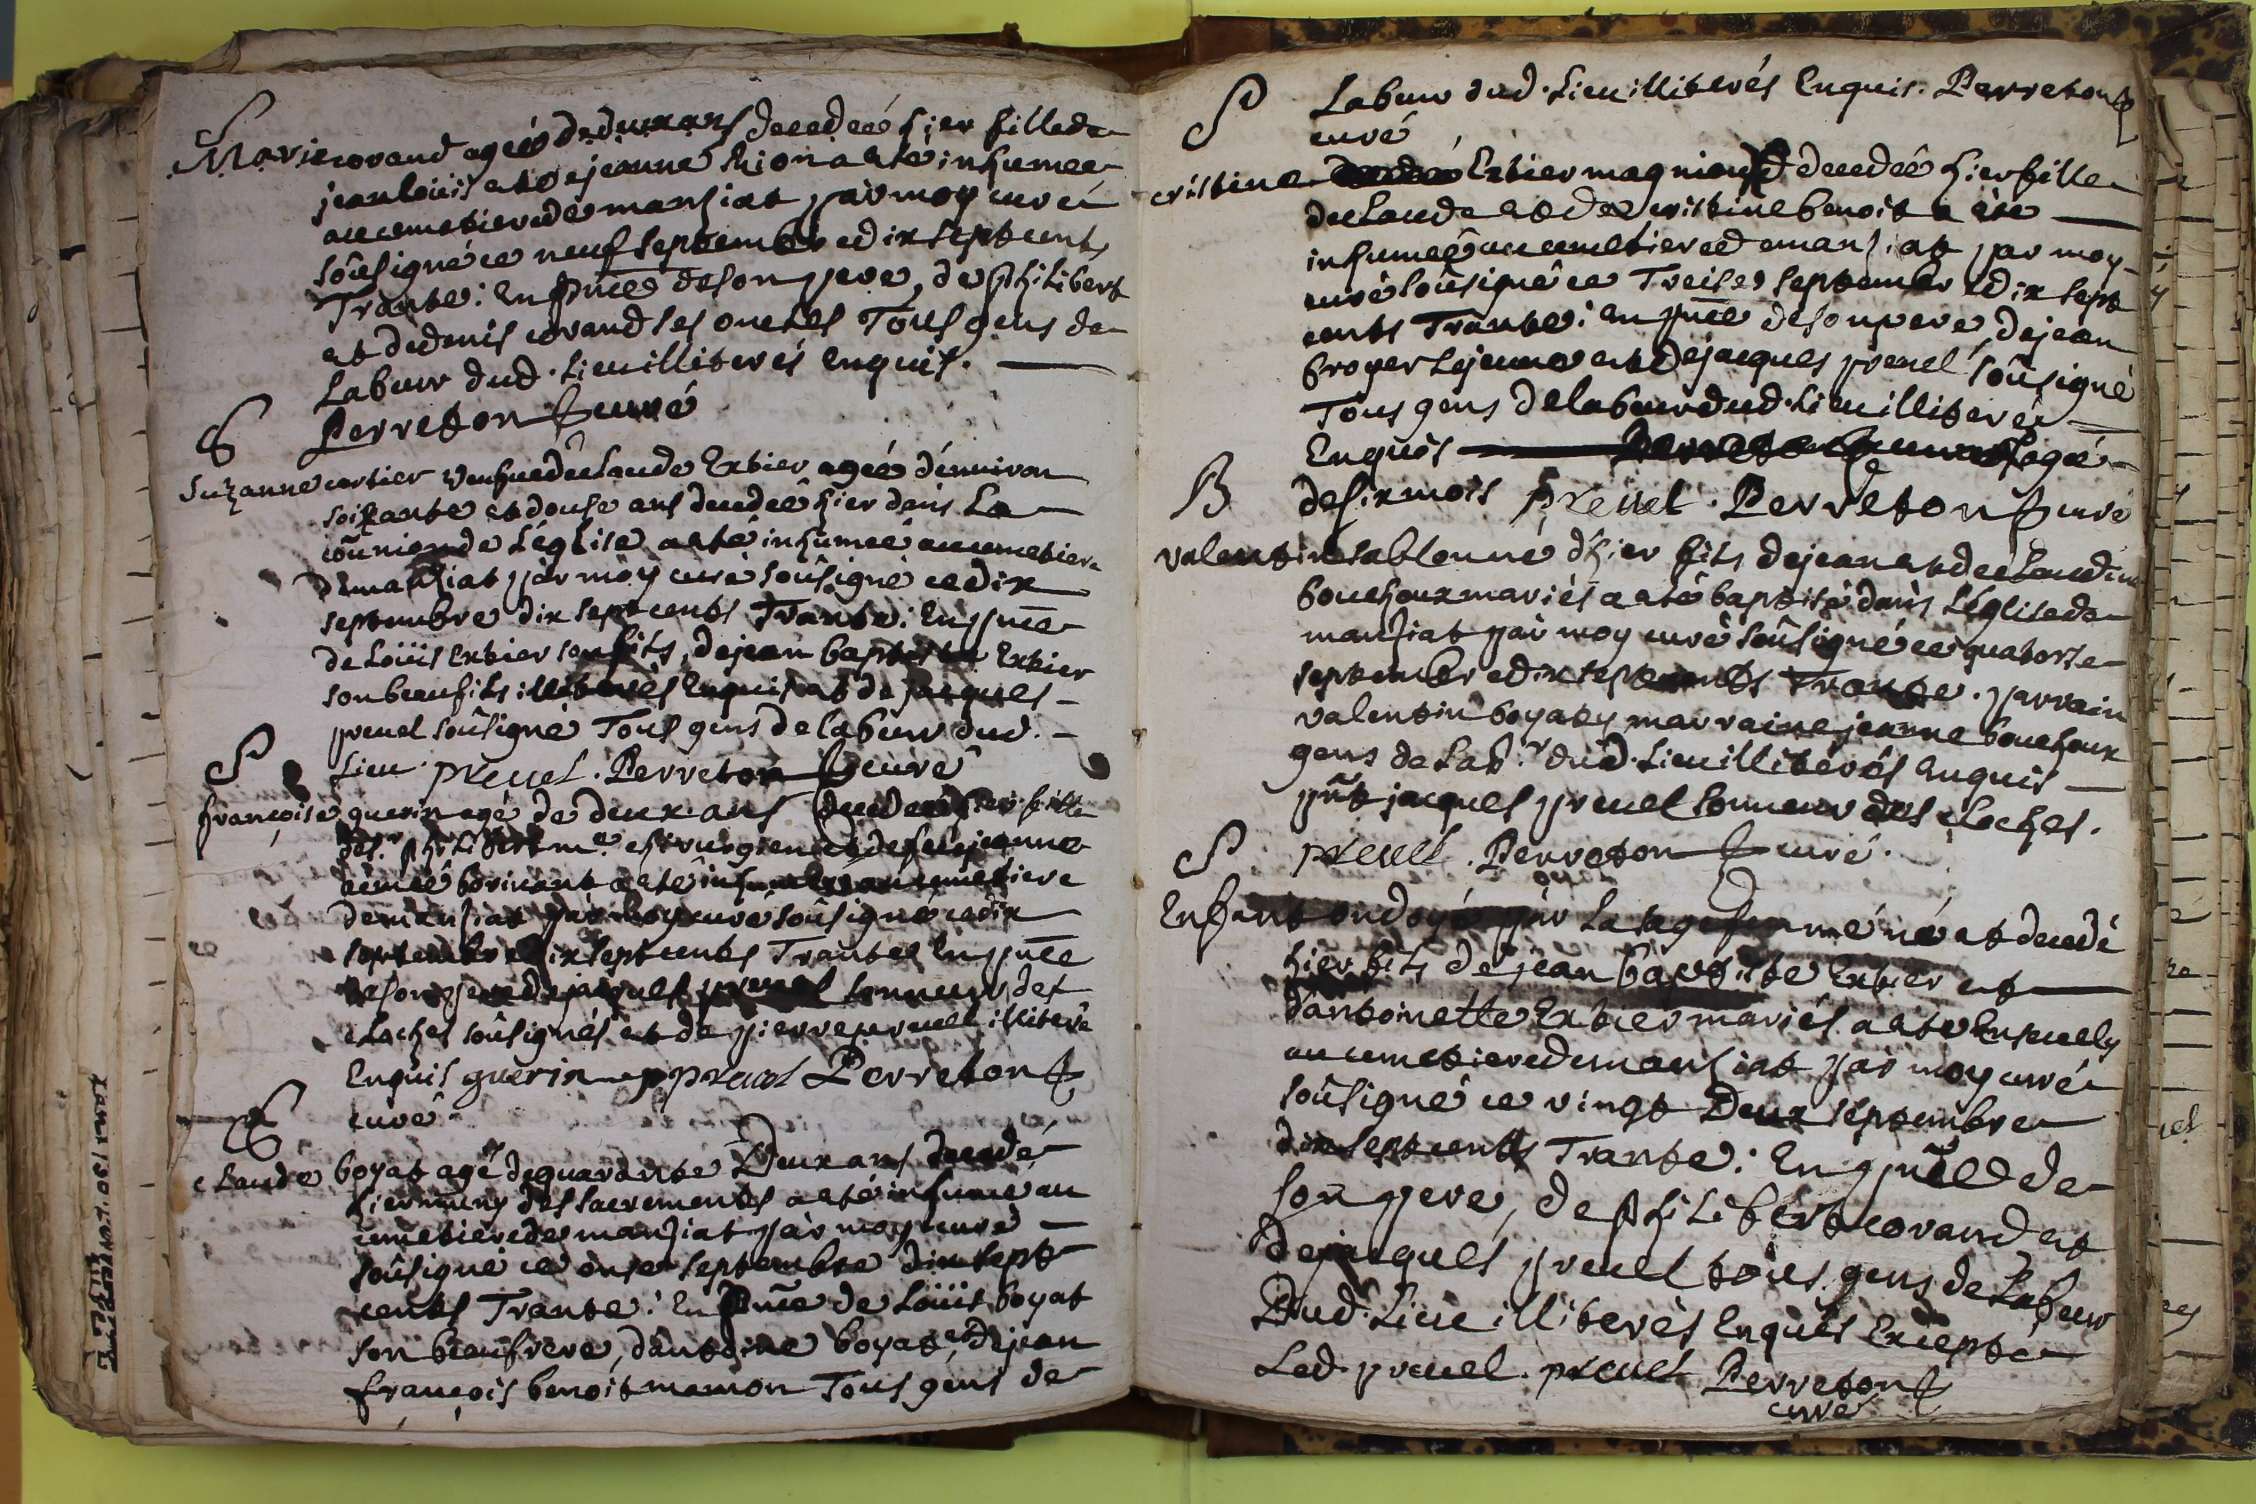 S
Marie corand agée de deux ans decedeé hier fille de
jean loüis et de jeanne a eté inhumeé
au cemetiere de manziat par moy curé
soûsigné ce neuf septembre dix sept cents
Trante: En pñce de son pere, de philibert
et de denis corand ses oncles Tous gens de
labeur dud. lieu illiterés Enquis.
Perreton curé
S
Suzanne cortier veuhue de claude Extier ageé dénviron
soixante et douse ans decedeé hier dans la
coũnion de L'église a eté inhumeé au cemetiere
de manziat par moy curé soûsigné ce dix
septembre dix sept cents Trante: En pñce
de Loüis Extier son fils, de jean baptiste Extier
son beaufils illiterés Enquis et de jacques
preuel soûsigné Tous gens de labeur dud.
lieu. preuel. Perreton curé
S
françoise guerin agé de deux ans decedeé hier fille
de sr philibert me chirurgien et de feu jeanne
aimeé borivant a eté inhumeé au cemetiere
de manziat par moy curé soûsigné ce dix
septembre dix sept cents Trante En pñce
de son pere de jacques preuel sonneur des
cloches soûsignés et de pierre preuel illiteré
Enquis guerin preuel Perreton
curé
S
claude boyat agé de quarante Deux ans decedé
hier muny des sacrements a eté inhumé au
cemetiere de manziat par moy curé
soûsigné ce onse septembre dix sept
cents Trante: En pñce de Loüis boyat
son beaufrere, d'antoine boyat et de jean
françois benoit mamon Tous gens de
S
Labeur dud. lieu illiterés Enquis. Perreton
curé
cristine Extier magnion decedeé hier fille
de claude et de cristine benoit a éte
inhumeé au cemetiere de manziat par moy
curé soûsigné ce Treise septembre dix sept
cents Trante: En pñce de son pere, de jean
broyer Lejeune et de jacques preuel soûsigné
Tous gens de labeur dud. lieu illiterés
Enquis ageé
de six mois preuel. Perreton curé
B
valentin sablonné d'hier fils de jean et de claudine
bouchoux mariés a eté baptisé dans L'église de
manziat par moy curé soûsigné ce quatorse
septembre dix sept cents Trante. parrain
valentin boyat marraine jeanne bouchoux
gens de Labr dud. lieu illiterés Enquis
pñt jacques preuel sonneur des cloches.
preuel. Perreton curé.
S
Enfant ondoyé par La sage femme né et decedé
hier fils de jean baptiste Extier et
d'antoinette Extier mariés. a eté Ensevely
au cemetiere de manziat par moy curé
soûsigné ce vingt Deux septembre
dix sept cents Trante: En pñce de
son pere, de philibert corand et
de jacques preuel tous gens de Labeur
Dud. lieu illiterés Enquis Excepté
Led. preuel. preuel Perreton
curé